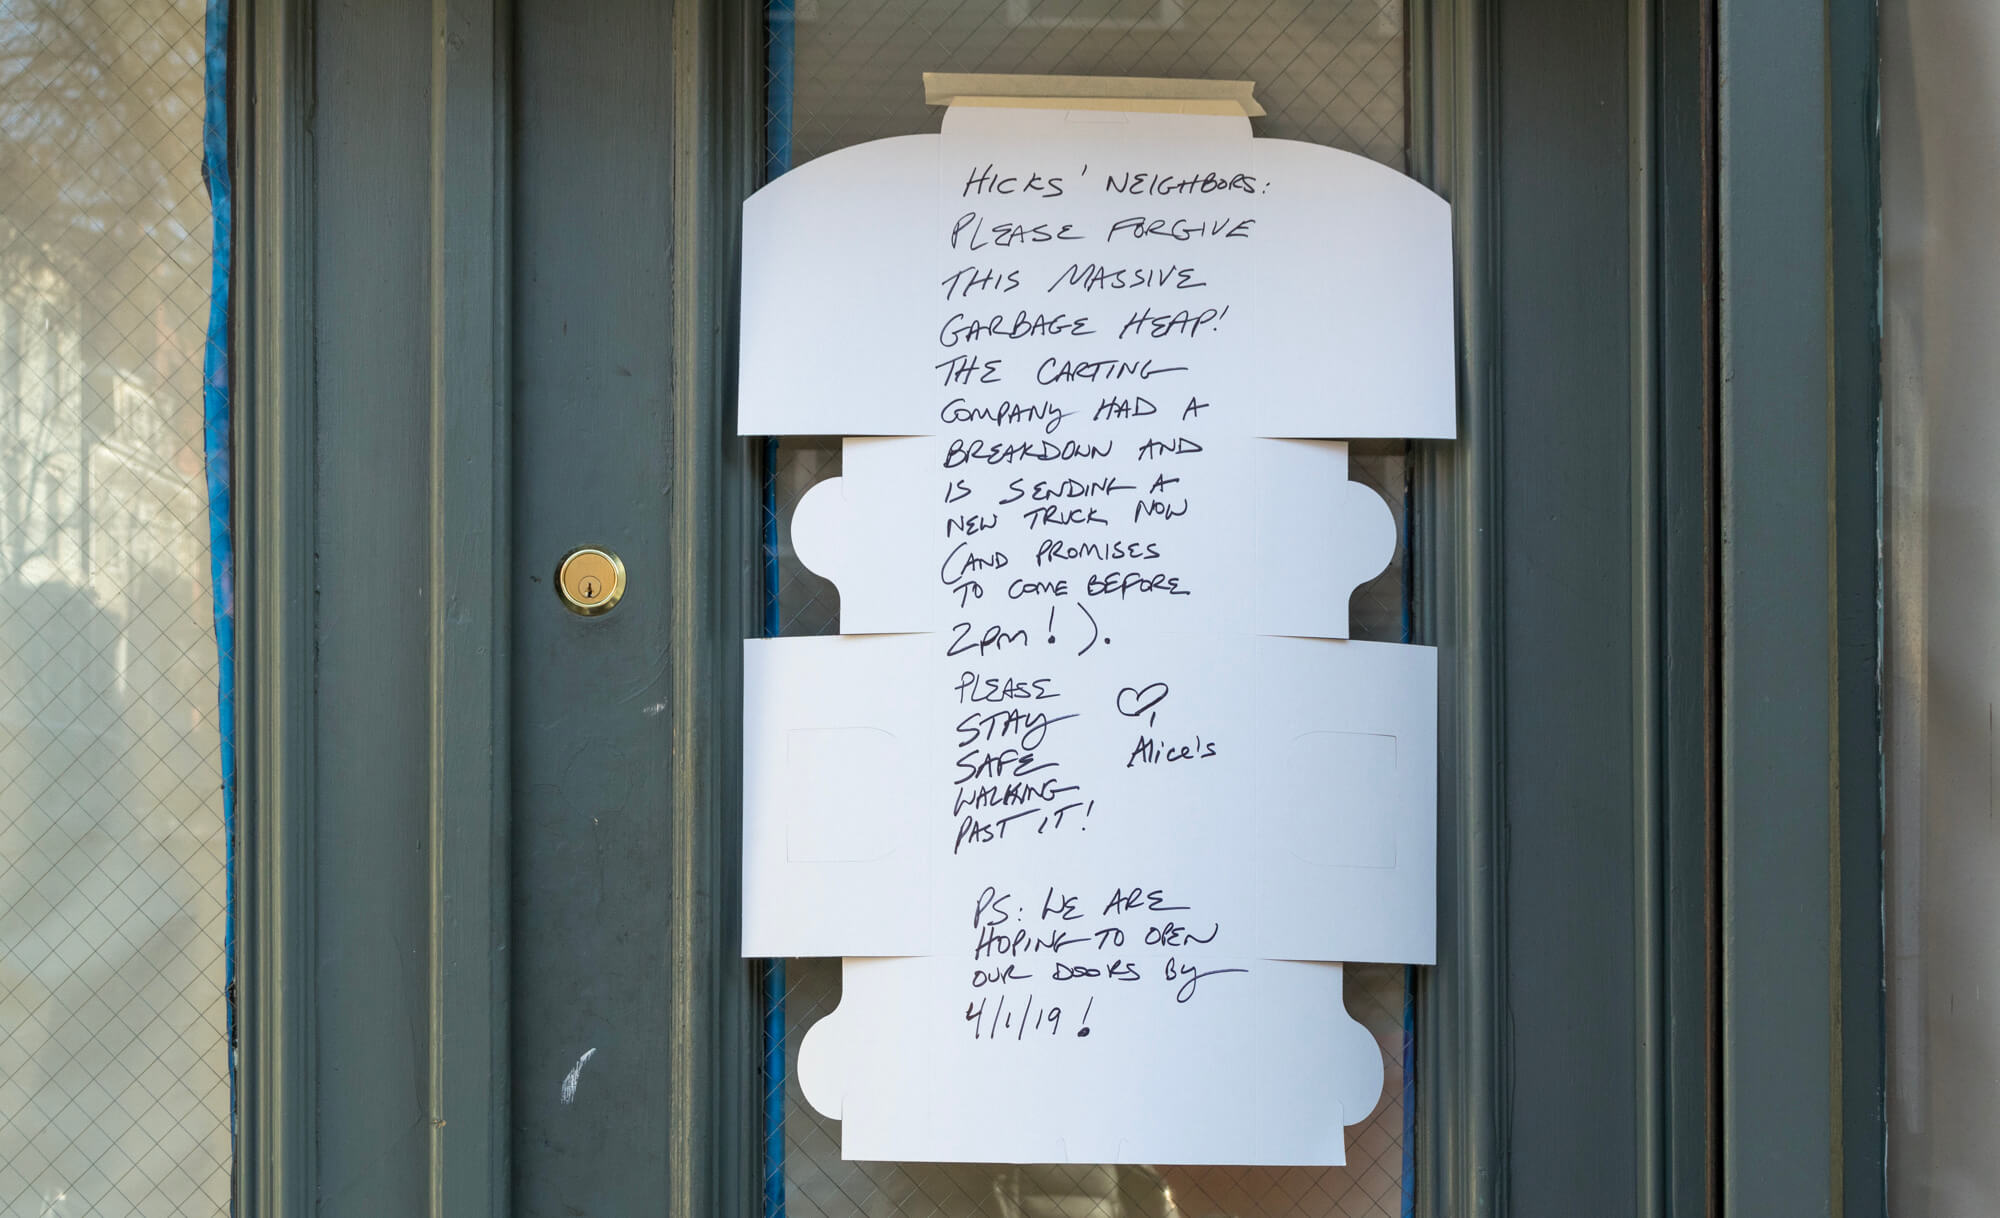 HICKS' NEIGHBORS:
PLEASE FORGIVE
THIS MASSIVE
GARBAGE HEAP!
THE CARTING
COMPANY HAD A
BREAKDOWN AND
IS SENDING A
NEW TRUCK NOW
(AND PROMISES
TO COME BEFORE
2PM!).
PLEASE
STAY
SAFE
WALKING
PAST IT!
♡,
Alice's
PS: WE ARE
HOPING TO OPEN
OUR DOORS BY
4/1/19!